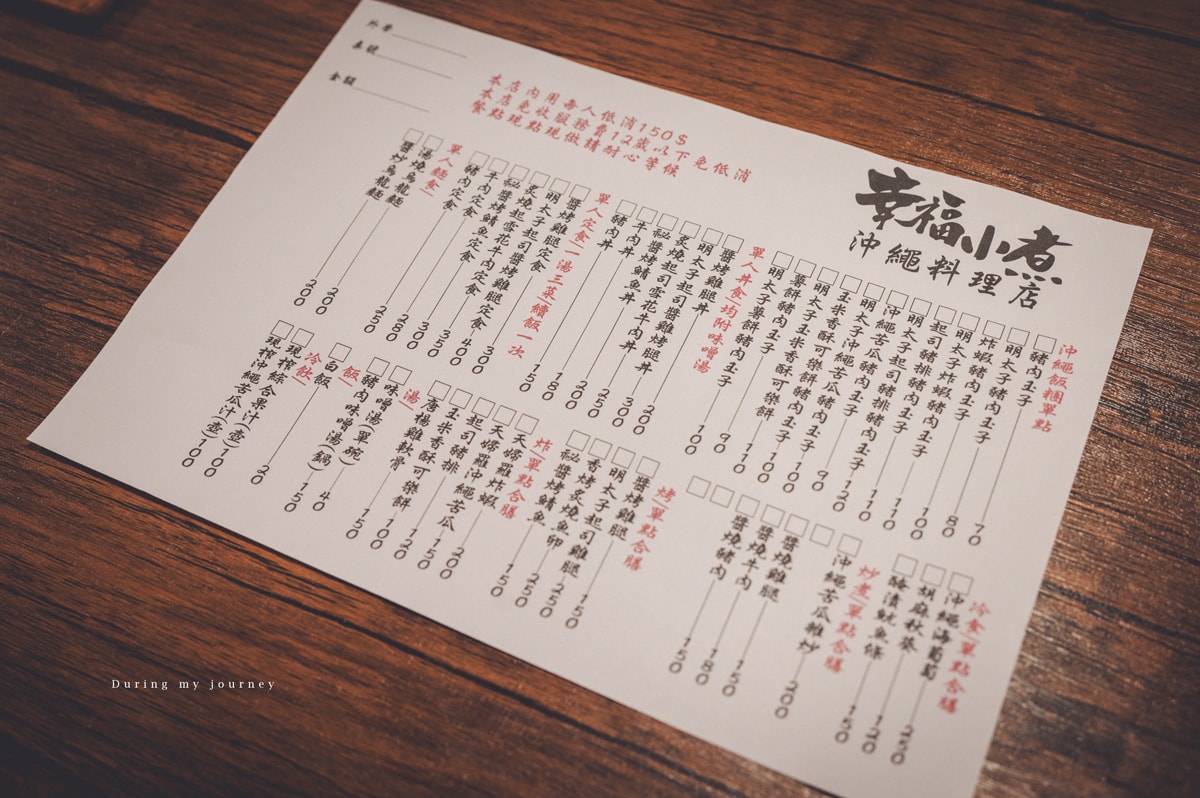 外帶
桌號
金額
本店內用每人低消150$
本店免收服務費12歲以下免低消
餐點現點現做請耐心等候
幸福小煮
沖繩料理店
沖繩飯糰單點
豬肉玉子 70
明太子豬肉玉子 80
炸蝦豬肉玉子 100
明太子炸蝦豬肉玉子 110
起司豬排豬肉玉子 110
明太子起司豬排豬肉玉子 120
沖繩苦瓜豬肉玉子 90
明太子沖繩苦瓜豬肉玉子 100
玉米香酥可樂餅豬肉玉子 100
明太子玉米香酥可樂餅 110
薯餅豬肉玉子 90
明太子薯餅豬肉玉子 100
單人丼食(均附味噌湯)
醬烤雞腿丼
明太子
炙燒起司醬雞烤腿丼 200
起司雪花牛肉丼 300
秘醬烤鯖魚丼 250
牛肉丼 200
豬肉丼 180
單人定食(一湯三菜)續飯一次
醬烤雞腿定食
明太子起司醬烤雞腿定食 300
炙燒起司雪花牛肉定食 400
秘醬烤鯖魚定食 350
牛肉定食 300
豬肉定食 280
單人麵食
湯燒烏龍麵 200
醬炒烏龍麵 200
冷食(單點合購)
沖繩海葡萄 250
胡麻秋葵 120
醃漬魷魚條 150
炒煮(單點合購)
沖繩苦瓜雜炒 200
醬燒雞腿 150
醬燒牛肉 180
醬燒豬肉 150
烤(單點合購)
醬烤雞腿
明太子起司雞腿 150
香烤炙燒魚卵 250
秘醬烤鯖魚 250
炸(單點合購)
天婦羅炸蝦 200
天婦羅沖繩苦瓜 150
起司豬排 120
玉米香酥可樂餅 100
唐揚雞軟骨 150
湯
味噌湯(單碗) 40
豬肉味噌湯(鍋) 150
飯
白飯 20
冷飲
現榨綜合果汁(壺) 100
現榨沖繩苦瓜汁(壺) 100
During my journey